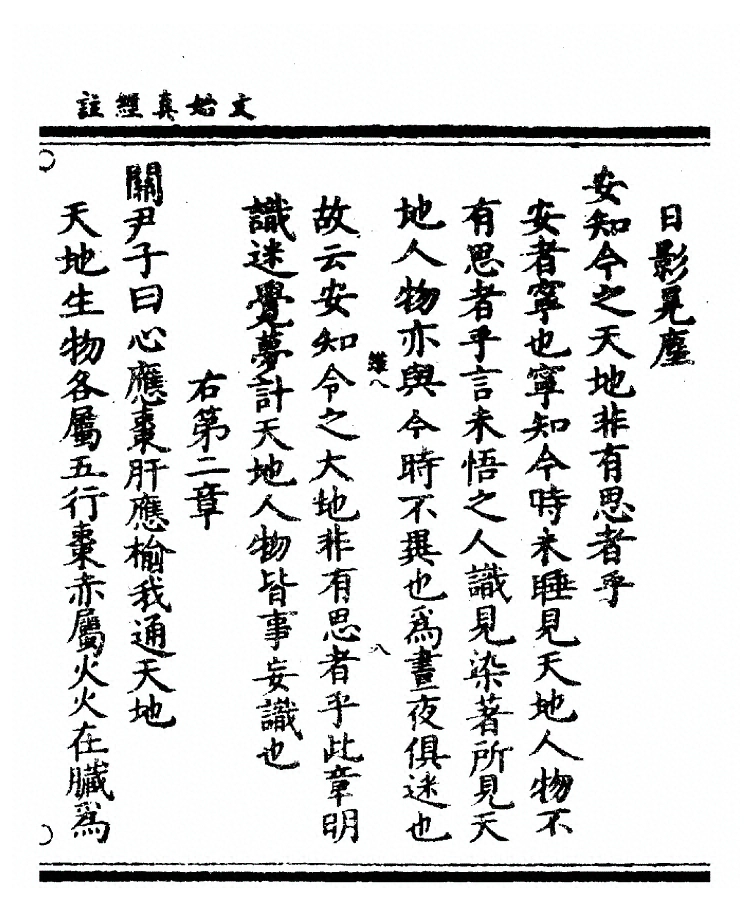 文始真經註
日影晃塵
安知今之天地非有思者乎
安者寧也寧知今時未睡見天地人物不
有思者乎言未悟之人識見染著所見天
地人物亦與今時不異也爲晝夜俱迷也
八
八
故云安知今之大地非有思者乎此章明
識迷覺夢計天地人物皆事妄識也
右第二章
關尹子曰心應棗肝應榆我通天地
天地生物各屬五行棗赤屬火火在臟爲